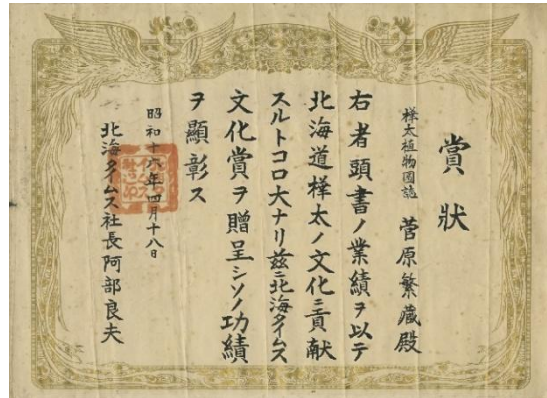 賞狀
樺太植物圖誌 菅原繁藏殿
右者頭書ノ業績ヲ以テ
北海道樺太ノ文化ニ貢献
スルトコロ大ナリ茲ニ北海タイムス
文化賞ヲ贈呈シソノ功績
ヲ顯彰ス
昭和十六年四月十八日
北海タイムス社長阿部良夫